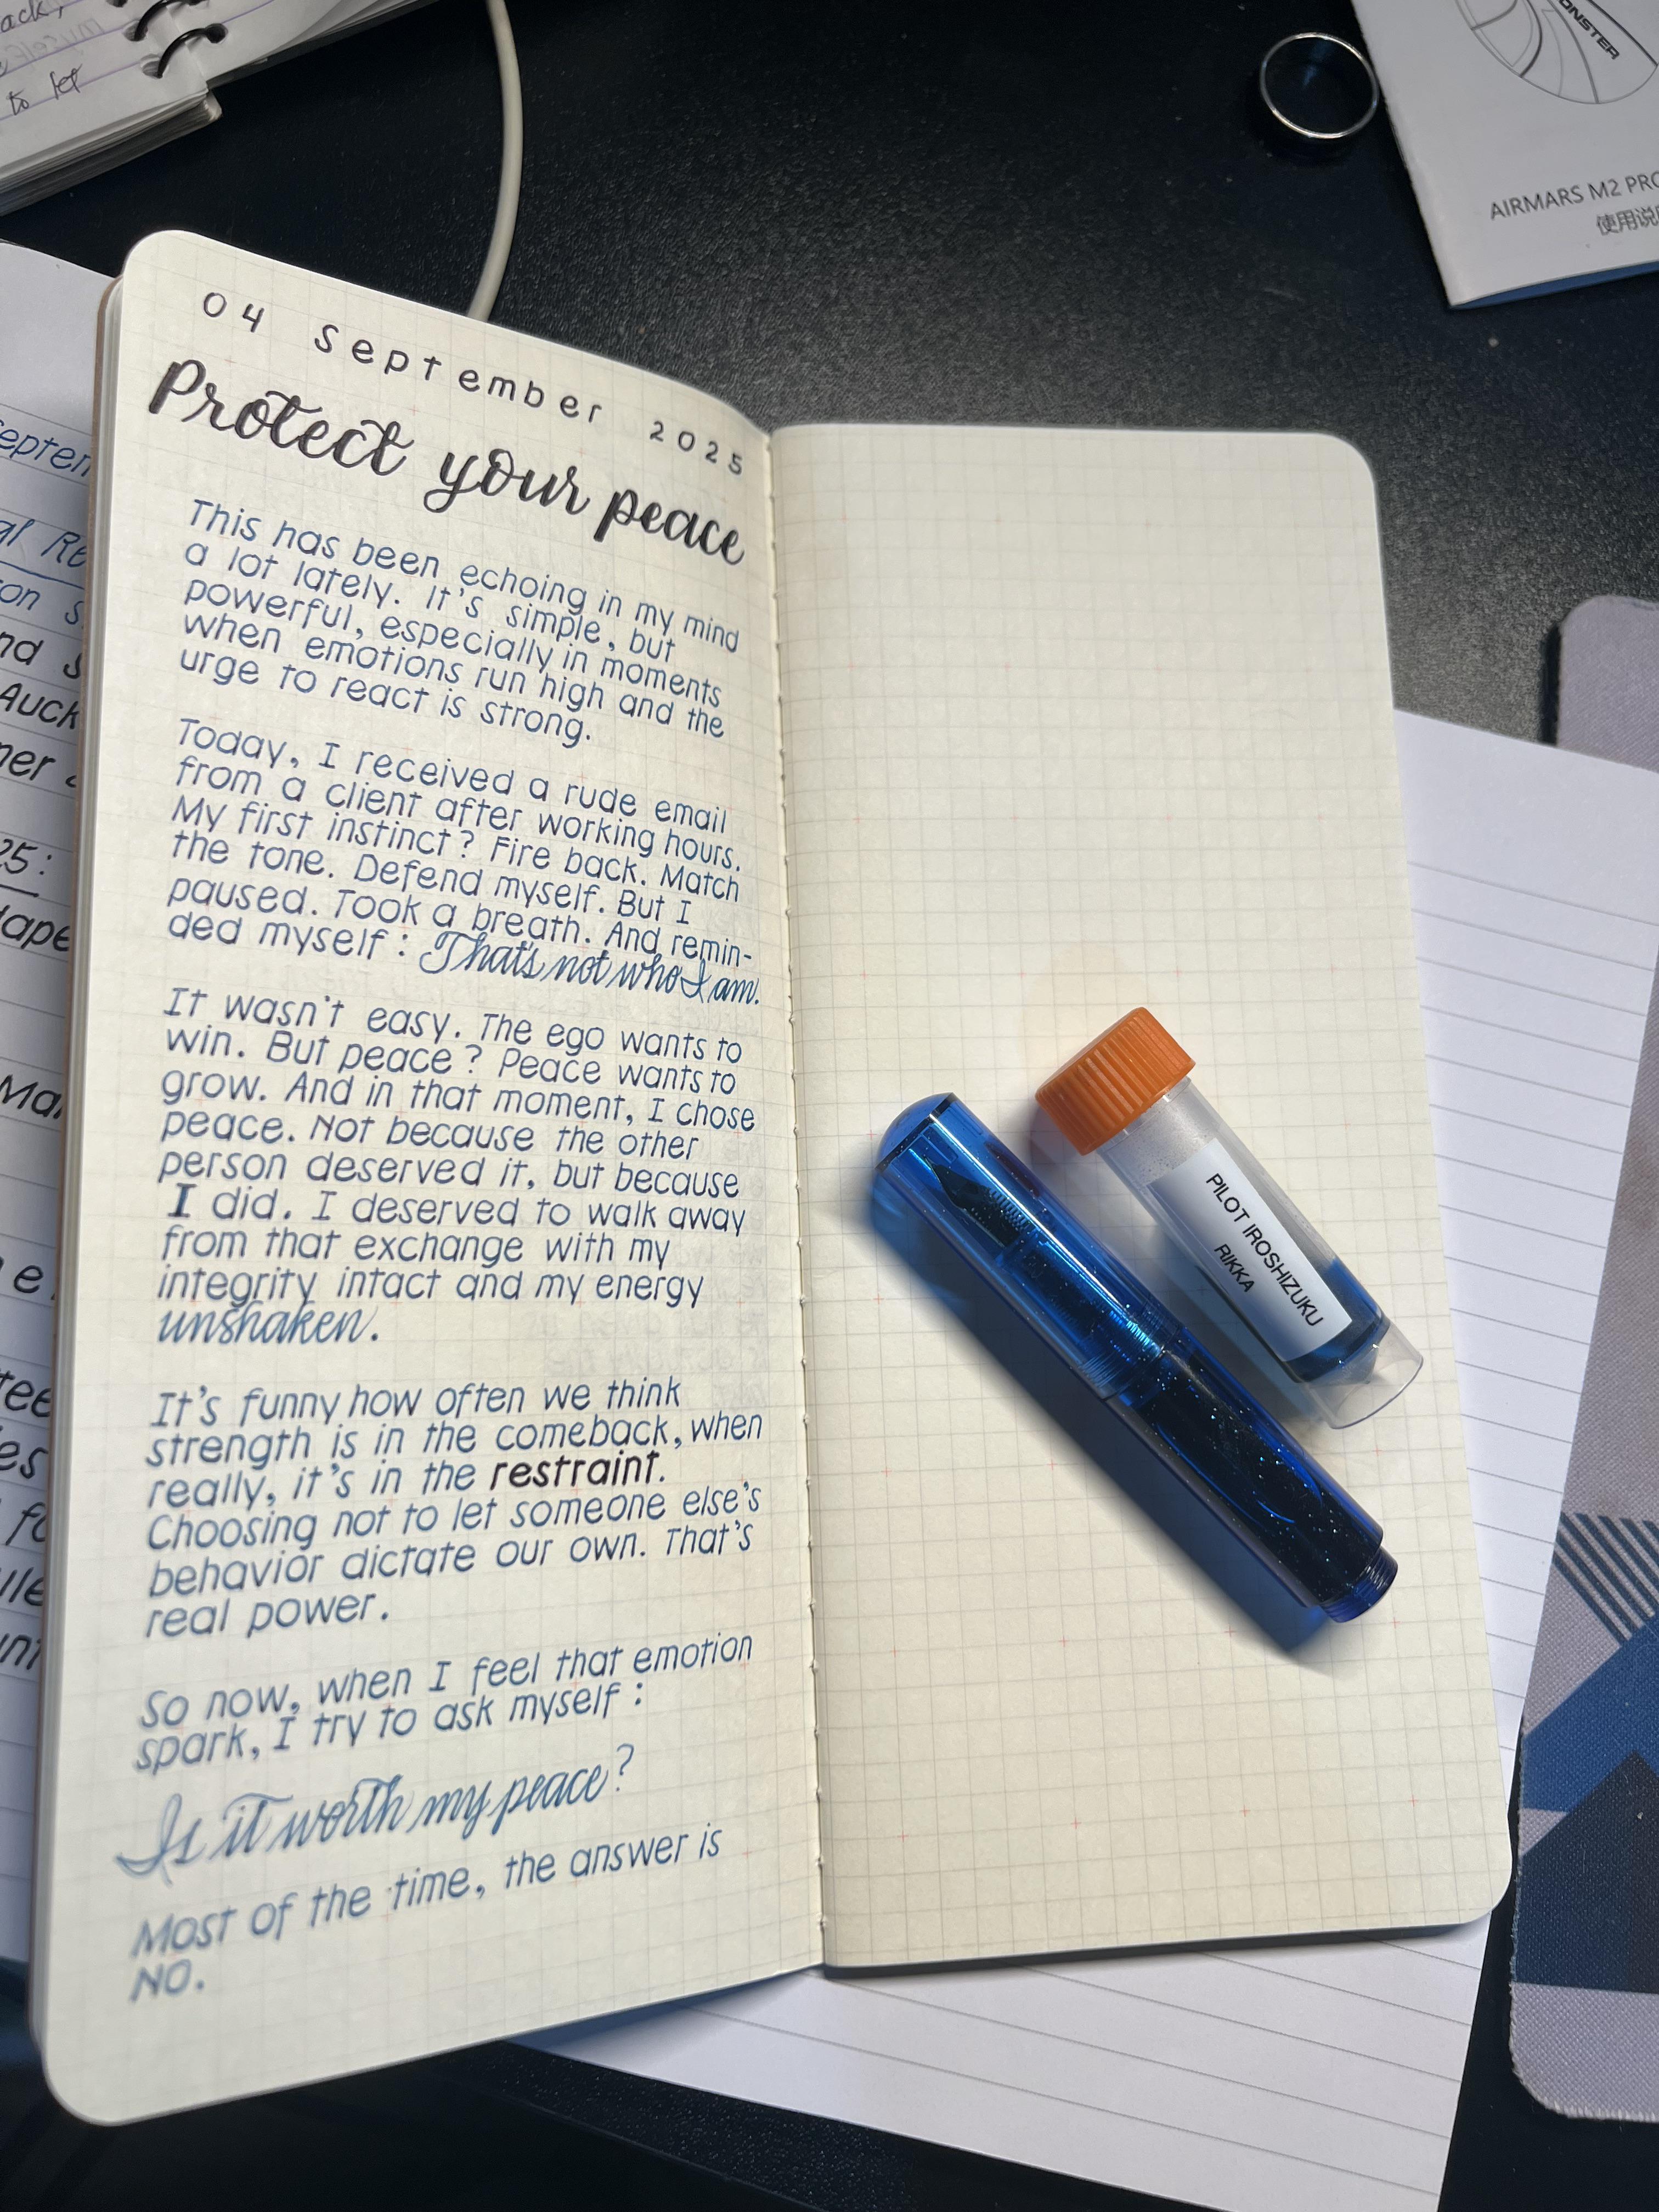 ack,
to let
ONSTER
AIRMARS M2 PRO
使用说
04 September 2025
Protect your peace
This has been echoing in my mind
a lot lately. It's simple, but
powerful, especially in moments
when emotions run high and the
urge to react is strong.
Today, I received a rude email
from a client after working hours.
My first instinct? Fire back. Match
the tone. Defend myself. But I
paused. Took a breath. And remin-
ded myself: That's not who I am.
It wasn't easy. The ego wants to
win. But peace? Peace wants to
grow. And in that moment, I chose
peace. Not because the other
person deserved it, but because
I did. I deserved to walk away
from that exchange with my
integrity intact and my energy
unshaken.
It's funny how often we think
strength is in the comeback, when
really, it's in the restraint.
Choosing not to let someone else's
behavior dictate our own. That's
real power.
So now, when I feel that emotion
spark, I try to ask myself:
Is it worth my peace?
Most of the time, the answer is
NO.
PILOT IROSHIZUKU
RIKKA
Septem
al Re
on s
nd s
Auck
ner
25:
tape
Mar
e
tee
es
fo
ule
unt